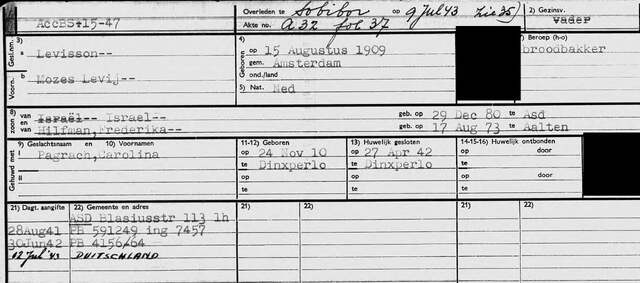 AccBS+15-47
Overleden te Sobibor op 9 Jul 43 zie 35)
Akte no. A 32 fol 37
2) Gezinsv.
vader
Gesl.nm. 3)
a Levisson--
Voorn. b Mozes Levij--
4)
Geboren op 15 Augustus 1909
gem. Amsterdam
ond./land
5) Nat. Ned
7) Beroep (h-o)
broodbakker
8)
zoon van Israël-- Israel-- geb. op 29 Dec 80 te Asd
en van Hilfman,Frederika-- geb. op 17 Aug 73 te Aalten
Gehuwd met 9) Geslachtsnaam en 10) Voornamen
I Pagrach,Carolina
II
11-12) Geboren
op 24 Nov 10
te Dinxperlo
op
te
13) Huwelijk gesloten
op 27 Apr 42
te Dinxperlo
op
te
14-15-16) Huwelijk ontbonden
op door
te
op door
te
21) Dagt. aangifte 22) Gemeente en adres
ASD Blasiusstr 113 1h
28Aug41 PB 591249 ing 7457
30Jun42 PB 4156/64
12 Jul '43 DUITSCHLAND
21) 22)
21) 22)